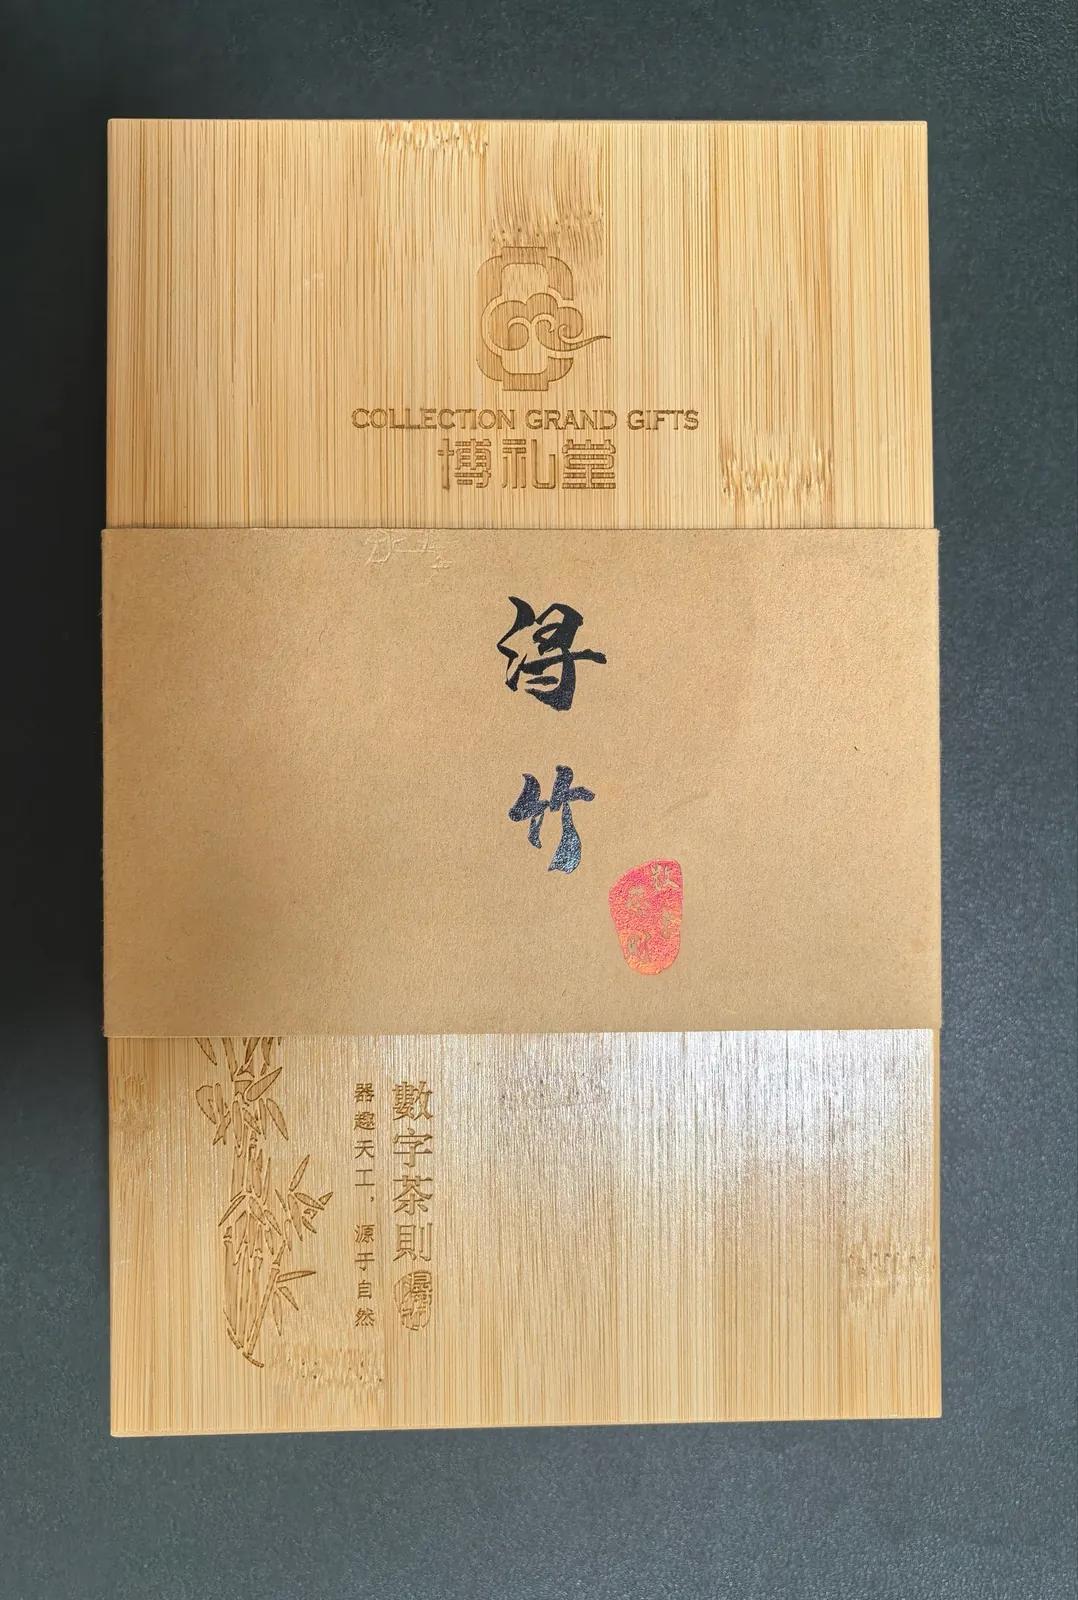 COLLECTION GRAND GIFTS
博礼堂
浔
竹
數字茶則
數字茶則
器趣天工，源于自然